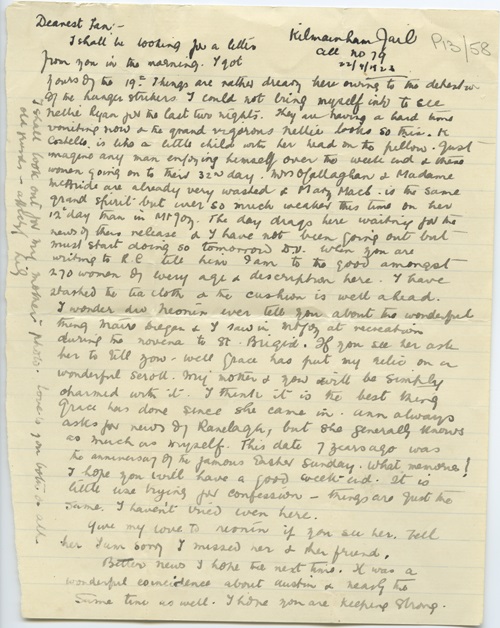 Kilmainham Jail
Cell no 79
22/4/1923
P13/58
Dearest Fan:-
I shall be looking for a letter
from you in the morning. I got
yours of the 19th. Things are rather dreary here owing to the
of the hunger strikers. I could not bring myself in to see
Nellie Ryan for the last two nights. They are having a hard time
vomiting now & the grand vigorous Nellie looks so thin. K
Costello is like a little child with her head on the pillow. Just
imagine any man enjoying himself over the week end & these
women going on to their 32nd day. Mrs O'Callaghan & Madame
McBride are already very washed & Mary MacS. is the same
grand spirit but ever so much weaker this time on her
12th day than in Mt Joy. The day drags here waiting for the
news of their release & I have not been going out but
must start doing so tomorrow D.V. When you are
writing to R.C. tell him I am to the good amongst
270 women of every age & description here. I have
started the tea cloth & the cushion is well ahead.
I wonder did ever tell you about the wonderful
thing Maire & I saw in Mt Joy at recreation
during the novena to St. Brigid. If you see her ask
her to tell you - well Grace has put my relic on a
wonderful scroll. My mother & you will be simply
charmed with it. I think it is the best thing
Grace has done since she came in. Ann always
asks for news of Ranelagh, but she generally knows
as much as myself. This date 7 years ago was
the anniversary of the famous Easter Sunday. What memories!
I hope you will have a good week-end. It is
little use trying for confession - things are just the
same. I haven't tried even here.
Give my love to if you see her. Tell
her I am sorry I missed her & her friend.
Better news I hope the next time. It was a
wonderful coincidence about Austin & nearly the
same time as well. I hope you are keeping strong.
I shall look out for my mother's photo. Love to you both & all
old friends - Lily